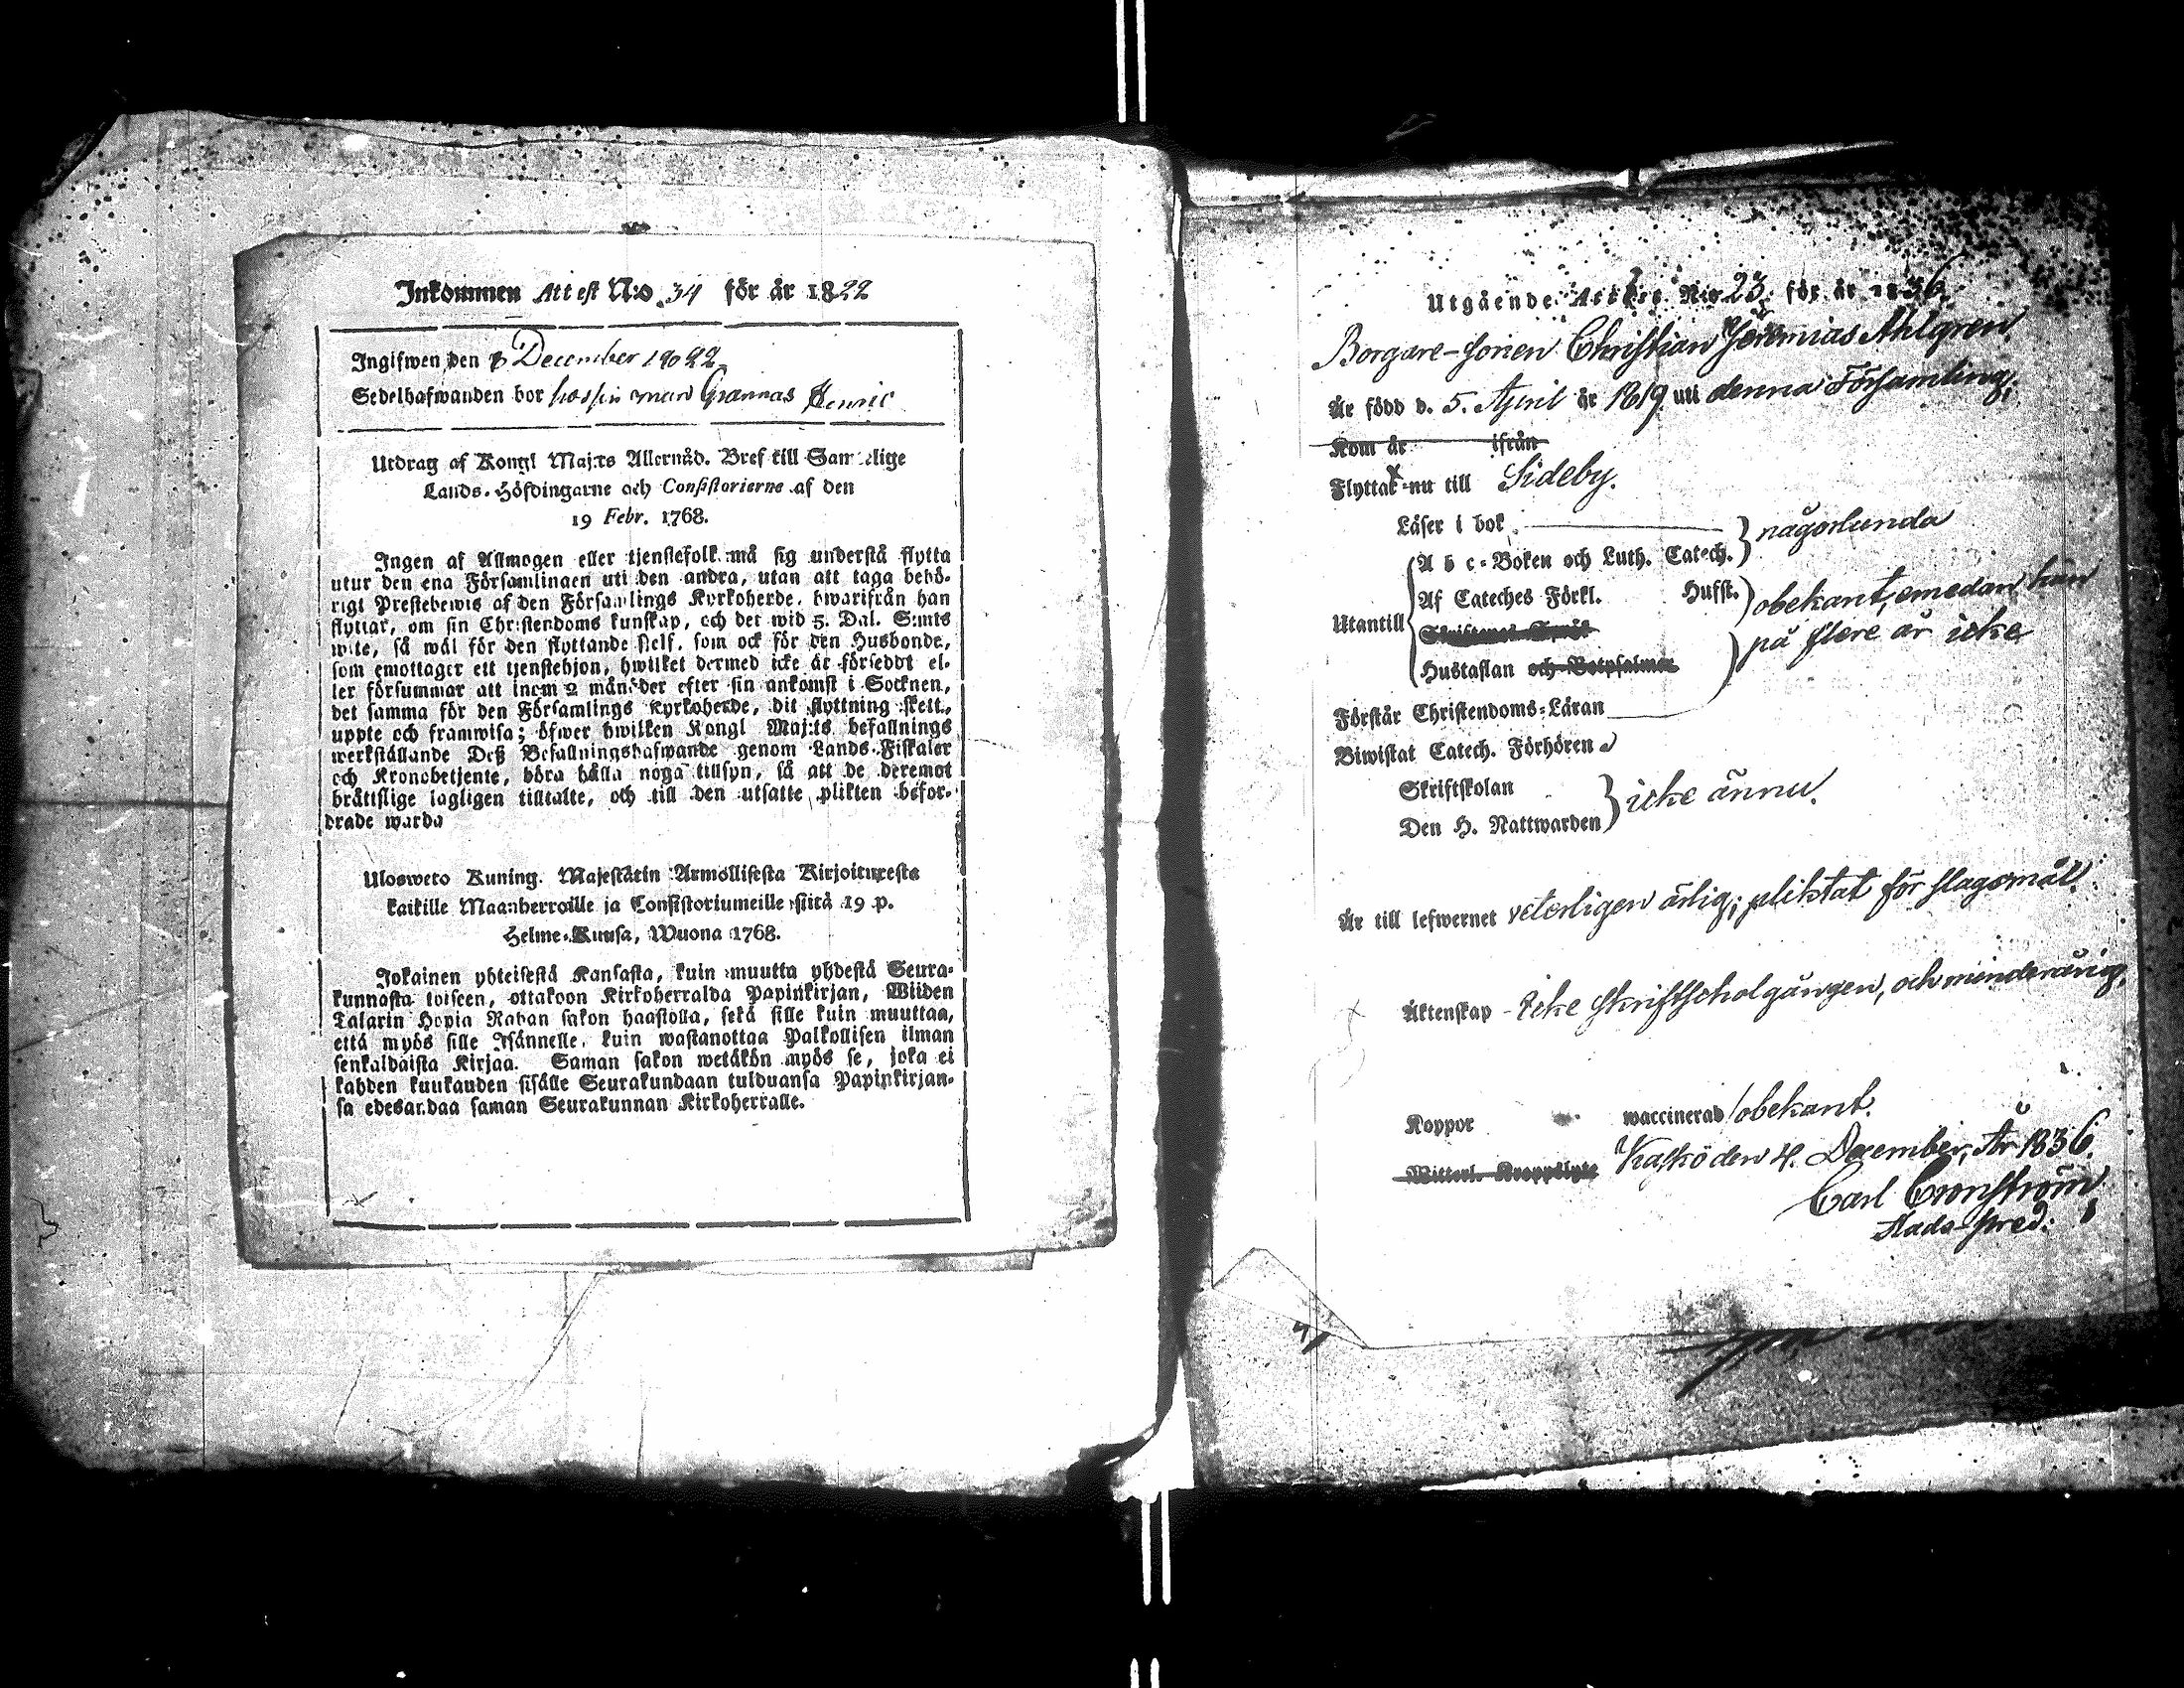 Inkommen Attest N:o 34 för år 1822
Ingifwen den 8 December 1822
Sedelhafwanden bor hos Grannas Henric
Utdrag af Kongl Maj:ts Allernåd. Bref till Samtelige
Lands-Höfdingarne och Consistorierne af den
19 Febr. 1768.
Ingen af Allmogen eller tjenstefolk må sig understå flytta
utur den ena Församlingen uti den andra, utan att taga behö-
rigt Prestebewis af den Församlings Kyrkoherde, hwarifrån han
flyttar, om sin Christendoms kunskap, och det wid 5. Dal. S:mts
wite, så wäl för den flyttande sielf, som ock för den Husbonde,
som emottager ett tjenstehjon, hwilket dermed icke är förseddt el-
ler försummar att inom 2 månader efter sin ankomst i Socknen,
det samma för den Församlings Kyrkoherde, dit flyttning skett,
uppte och framwisa; öfwer hwilken Kongl Maj:ts befallnings
werkställande Deß Befallningshafwande genom Lands-Fiskaler
och Kronobetjente, böra hålla noga tillsyn, så att de deremot
bråttslige lagligen tilltalte, och till den utsatte plikten befor-
drade warda
Uloswеto Kuning. Majestätin Armollisesta Kirjoituxesta
kaikille Maanherroille ja Consistoriumeille siitä 19 p.
Helme-Kuusa, Wuona 1768.
Jokainen yhteisestä Kansasta, kuin muutta yhdestä Seura-
kunnasta toiseen, ottakoon Kirkoherralda Papinkirjan, Wiiden
Talarin Hopia Rahan sakon haastolla, sekä sille kuin muuttaa,
että myös sille Isännelle, kuin wastanottaa Palkollisen ilman
senkaldaista Kirjaa. Saman sakon wetäkön myös se, joka ei
kahden kuukauden sisälle Seurakundaan tulduansa Papinkirjan-
sa edesandaa saman Seurakunnan Kirkoherralle.
Utgående Attest N:o 23 för år 1836
Borgare-sonen Christian Jeremias Ahlgren
Är född d. 5. April år 1819. uti denna Församling,
Kom år ifrån
Flyttar nu till Sideby.
Läser i bok
någorlunda
A b c-Boken och Luth. Catech.
Af Cateches Förkl. Hufst.
obekant, emedan han
Utantill
på flere år icke
Hustaflan och Botpsalmer
Förstår Christendoms-Läran
Biwistat Catech. Förhören
Skriftskolan
icke ännu.
Den H. Nattwarden
Är till lefwernet veterligen ärlig; pliktat för slagsmål.
Äktenskap - Icke skriftskolgången, och minderårig.
Koppor waccinerad obekant.
Witterl. Kroppslyte
Kaskö den 4. December, År 1836.
Carl Cronström
Stads-pred.